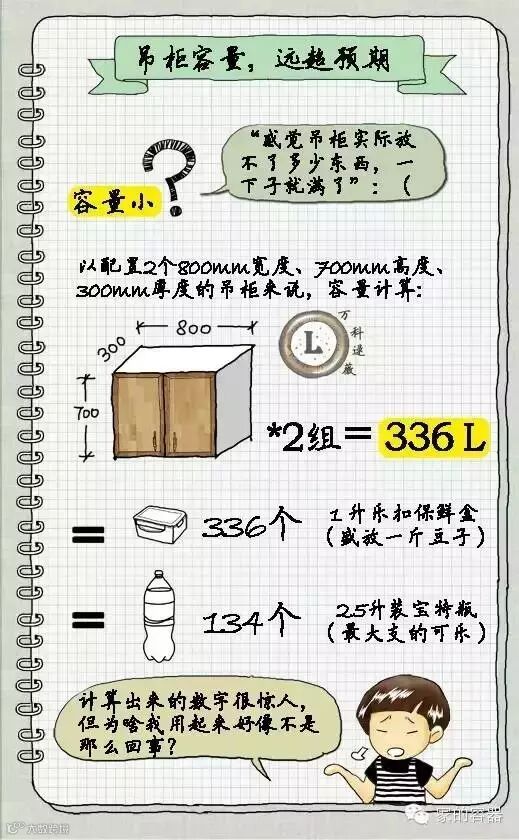 吊柜容量，远超预期
“感觉吊柜实际放
不了多少东西，一
下子就满了”：（
容量小
以配置2个800mm宽度、700mm高度、
300mm厚度的吊柜来说，容量计算：
800
300
700
L
万科逯薇
*2组＝336 L
= 336个
1升乐扣保鲜盒
（盛放一斤豆子）
= 134个
2.5升装宝特瓶
（最大支的可乐）
计算出来的数字很惊人，
但为啥我用起来好像不是
那么回事？
家的容器
大数跨境